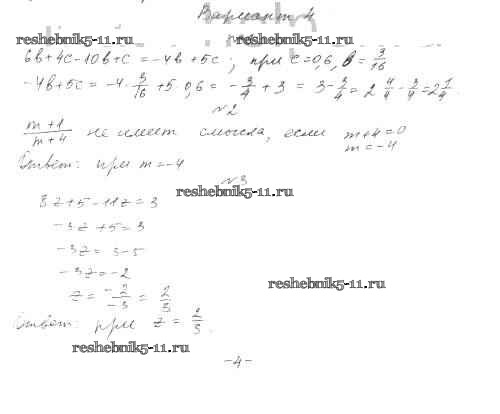 Вариант 4
reshebnik5-11.ru reshebnik5-11.ru
6в+4с-10в+с=-4в+5с; при с=0,6, в=3/16
-4в+5с=-4·3/16+5·0,6=-3/4+3=3-3/4=2 4/4-3/4=2 1/4.
№2
m+1/m+4 не имеет смысла, если m+4=0
m=-4
Ответ: при m=-4
№3
reshebnik5-11.ru
8z+5-11z=3
-3z+5=3
-3z=3-5
-3z=-2
reshebnik5-11.ru
z=-2/-3=2/3
Ответ: при z=2/3.
reshebnik5-11.ru
-4-